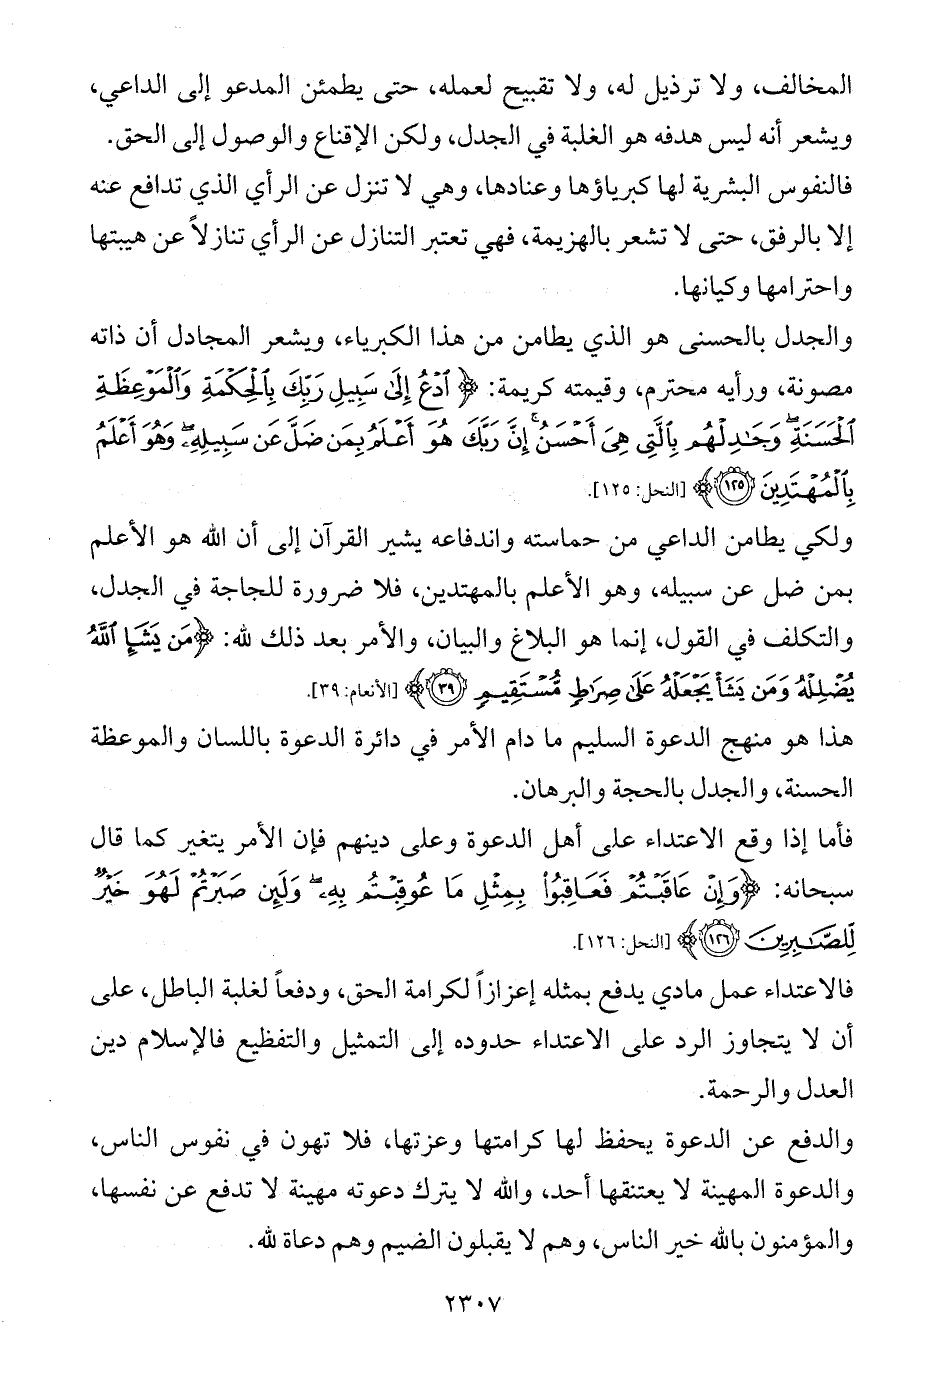 المخالف، ولا ترذيل له، ولا تقبيح لعمله، حتى يطمئن المدعو إلى الداعي،
ويشعر أنه ليس هدفه هو الغلبة في الجدل، ولكن الإقناع والوصول إلى الحق.
فالنفوس البشرية لها كبرياؤها وعنادها، وهي لا تنزل عن الرأي الذي تدافع عنه
إلا بالرفق، حتى لا تشعر بالهزيمة، فهي تعتبر التنازل عن الرأي تنازلاً عن هيبتها
واحترامها وكيانها.
والجدل بالحسنى هو الذي يطامن من هذا الكبرياء، ويشعر المجادل أن ذاته
مصونة، ورأيه محترم، وقيمته كريمة: ﴿ٱدۡعُ إِلَىٰ سَبِيلِ رَبِّكَ بِٱلۡحِكۡمَةِ وَٱلۡمَوۡعِظَةِ
ٱلۡحَسَنَةِۖ وَجَٰدِلۡهُم بِٱلَّتِي هِيَ أَحۡسَنُۚ إِنَّ رَبَّكَ هُوَ أَعۡلَمُ بِمَن ضَلَّ عَن سَبِيلِهِۦ وَهُوَ أَعۡلَمُ
بِٱلۡمُهۡتَدِينَ ١٢٥﴾ [النحل: ١٢٥].
ولكي يطامن الداعي من حماسته واندفاعه يشير القرآن إلى أن الله هو الأعلم
بمن ضل عن سبيله، وهو الأعلم بالمهتدين، فلا ضرورة للجاجة في الجدل،
والتكلف في القول، إنما هو البلاغ والبيان، والأمر بعد ذلك لله: ﴿مَن يَشَإِ ٱللَّهُ
يُضۡلِلۡهُ وَمَن يَشَأۡ يَجۡعَلۡهُ عَلَىٰ صِرَٰطٖ مُّسۡتَقِيمٖ ٣٩﴾ [الأنعام: ٣٩].
هذا هو منهج الدعوة السليم ما دام الأمر في دائرة الدعوة باللسان والموعظة
الحسنة، والجدل بالحجة والبرهان.
فأما إذا وقع الاعتداء على أهل الدعوة وعلى دينهم فإن الأمر يتغير كما قال
سبحانه: ﴿وَإِنۡ عَاقَبۡتُمۡ فَعَاقِبُواْ بِمِثۡلِ مَا عُوقِبۡتُم بِهِۦۖ وَلَئِن صَبَرۡتُمۡ لَهُوَ خَيۡرٞ
لِّلصَّٰبِرِينَ ١٢٦﴾ [النحل: ١٢٦].
فالاعتداء عمل مادي يدفع بمثله إعزازاً لكرامة الحق، ودفعاً لغلبة الباطل، على
أن لا يتجاوز الرد على الاعتداء حدوده إلى التمثيل والتفظيع فالإسلام دين
العدل والرحمة.
والدفع عن الدعوة يحفظ لها كرامتها وعزتها، فلا تهون في نفوس الناس،
والدعوة المهينة لا يعتنقها أحد، والله لا يترك دعوته مهينة لا تدفع عن نفسها،
والمؤمنون بالله خير الناس، وهم لا يقبلون الضيم وهم دعاة لله.
٢٣٠٧